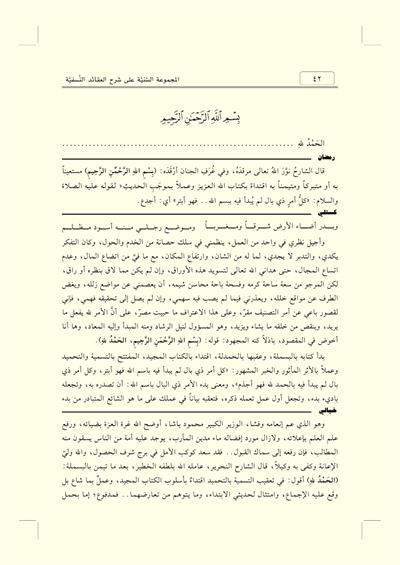 ٤٢
المجموعة السَّنيَّة على شرح العقائد النَّسفيَّة
بِسْمِ اللَّهِ الرَّحْمَٰنِ الرَّحِيمِ
الحَمْدُ للهِ ................................................................
رمضان
قال الشارحُ نوَّرَ اللهُ تعالى مرقدَهُ، وفي غُرَفِ الجنان أرْقَدَه: (بِسْمِ اللهِ الرَّحْمٰنِ الرَّحِيمِ) مستعيناً
به أو متبركاً ومتيمناً به اقتداءً بكتاب الله العزيز وعملاً بموجَبِ الحديثِ، لقوله عليه الصلاة
والسلام: «كلُّ أمرٍ ذي بال لم يُبدأ فيه ببسم الله.. فهو أبتر» أي: أجذع.
كستلي
وبــدر أضــاء الأرض شــرقــاً ومــغــربــاً وموضــع رجلــي منــه أسود مظلــم
وأجيل نظري في واحد من العمل، ينظمني في سلك حصانة من الخدم والحول، وكان التفكر
يكدي، والتدبر لا يجدي، لما له من الشان، وارتفاع المكان، مع ما فيَّ من اتضاع المال، وعدم
اتساع المجال، حتى هداني الله تعالى لتسويد هذه الأوراق، وإن لم يكن مما لاق بنظره أو راق،
لكن المرجو من سعة ساحة كرمه وفسحة باحة محاسن شيمه، أن يعصمني عن مواضع زلله، ويغض
الطرف عن مواقع خلله، ويعذرني فيما لم يصب فيه سهمي، وإن لم يصل إلى تحقيقه فهمي، فإني
لقصور باعي عن أمر التصنيف مقرّ، وعلى هذا الاعتراف ما حييت مصرّ، على أنَّ الأمر لله يفعل ما
يريد، وينقص من خلقه ما يشاء ويزيد، وهو المسؤول لنيل الرشاد ومنه المبدأ وإليه المعاد، وها أنا
أخوض في المقصود، باذلاً كنه المجهود: قوله: (بِسْمِ اللهِ الرَّحْمٰنِ الرَّحِيمِ، الحَمْدُ للهِ).
بدأ كتابه بالبسملة، وعقبها بالحمدلة، اقتداء بالكتاب المجيد، المفتتح بالتسمية والتحميد
وعملاً بالأثر المأثور والخبر المشهور: «كل أمر ذي بال لم يبدأ فيه باسم الله فهو أبتر، وكل أمر ذي
بال لم يبدأ فيه بالحمد لله فهو أجذم»؛ ومعنى بدء الأمر ذي البال باسم الله: أن تصدره به، وتجعله
باديء بدء، وتجعل أول عمل تعمله ذكره، فتعقبه بياناً في عملك على ما هو الشائع المتبادر من بدء
خيالي
وهو الذي عم إنعامه وفشاء، الوزير الكبير محمود باشاء، أوضح الله غرة العزة بضيائه، ورفع
علم العلم بإعلائه، ولازال مورد إفضاله ماء مدين المآرب، يوجد عليه أمة من الناس يسقون منه
المطالب، فإن رفعه إلى سماك القبول.. فقد سعد كوكب الأمل في برج شرف الحصول، والله وليّ
الإعانة وكفى به وكيلاً، قال الشارح النحرير، عامله الله بلطفه الخطير، بعد ما تيمن بالبسملة:
(الحَمْدُ للهِ) أقول: في تعقيب التسمية بالتحميد اقتداءٌ بأسلوب الكتاب المجيد، وعملٌ بما شاع بل
وقع عليه الإجماع، وامتثال لحديثي الابتداء، وما يتوهم من تعارضهما.. فمدفوع؛ إما بحمل